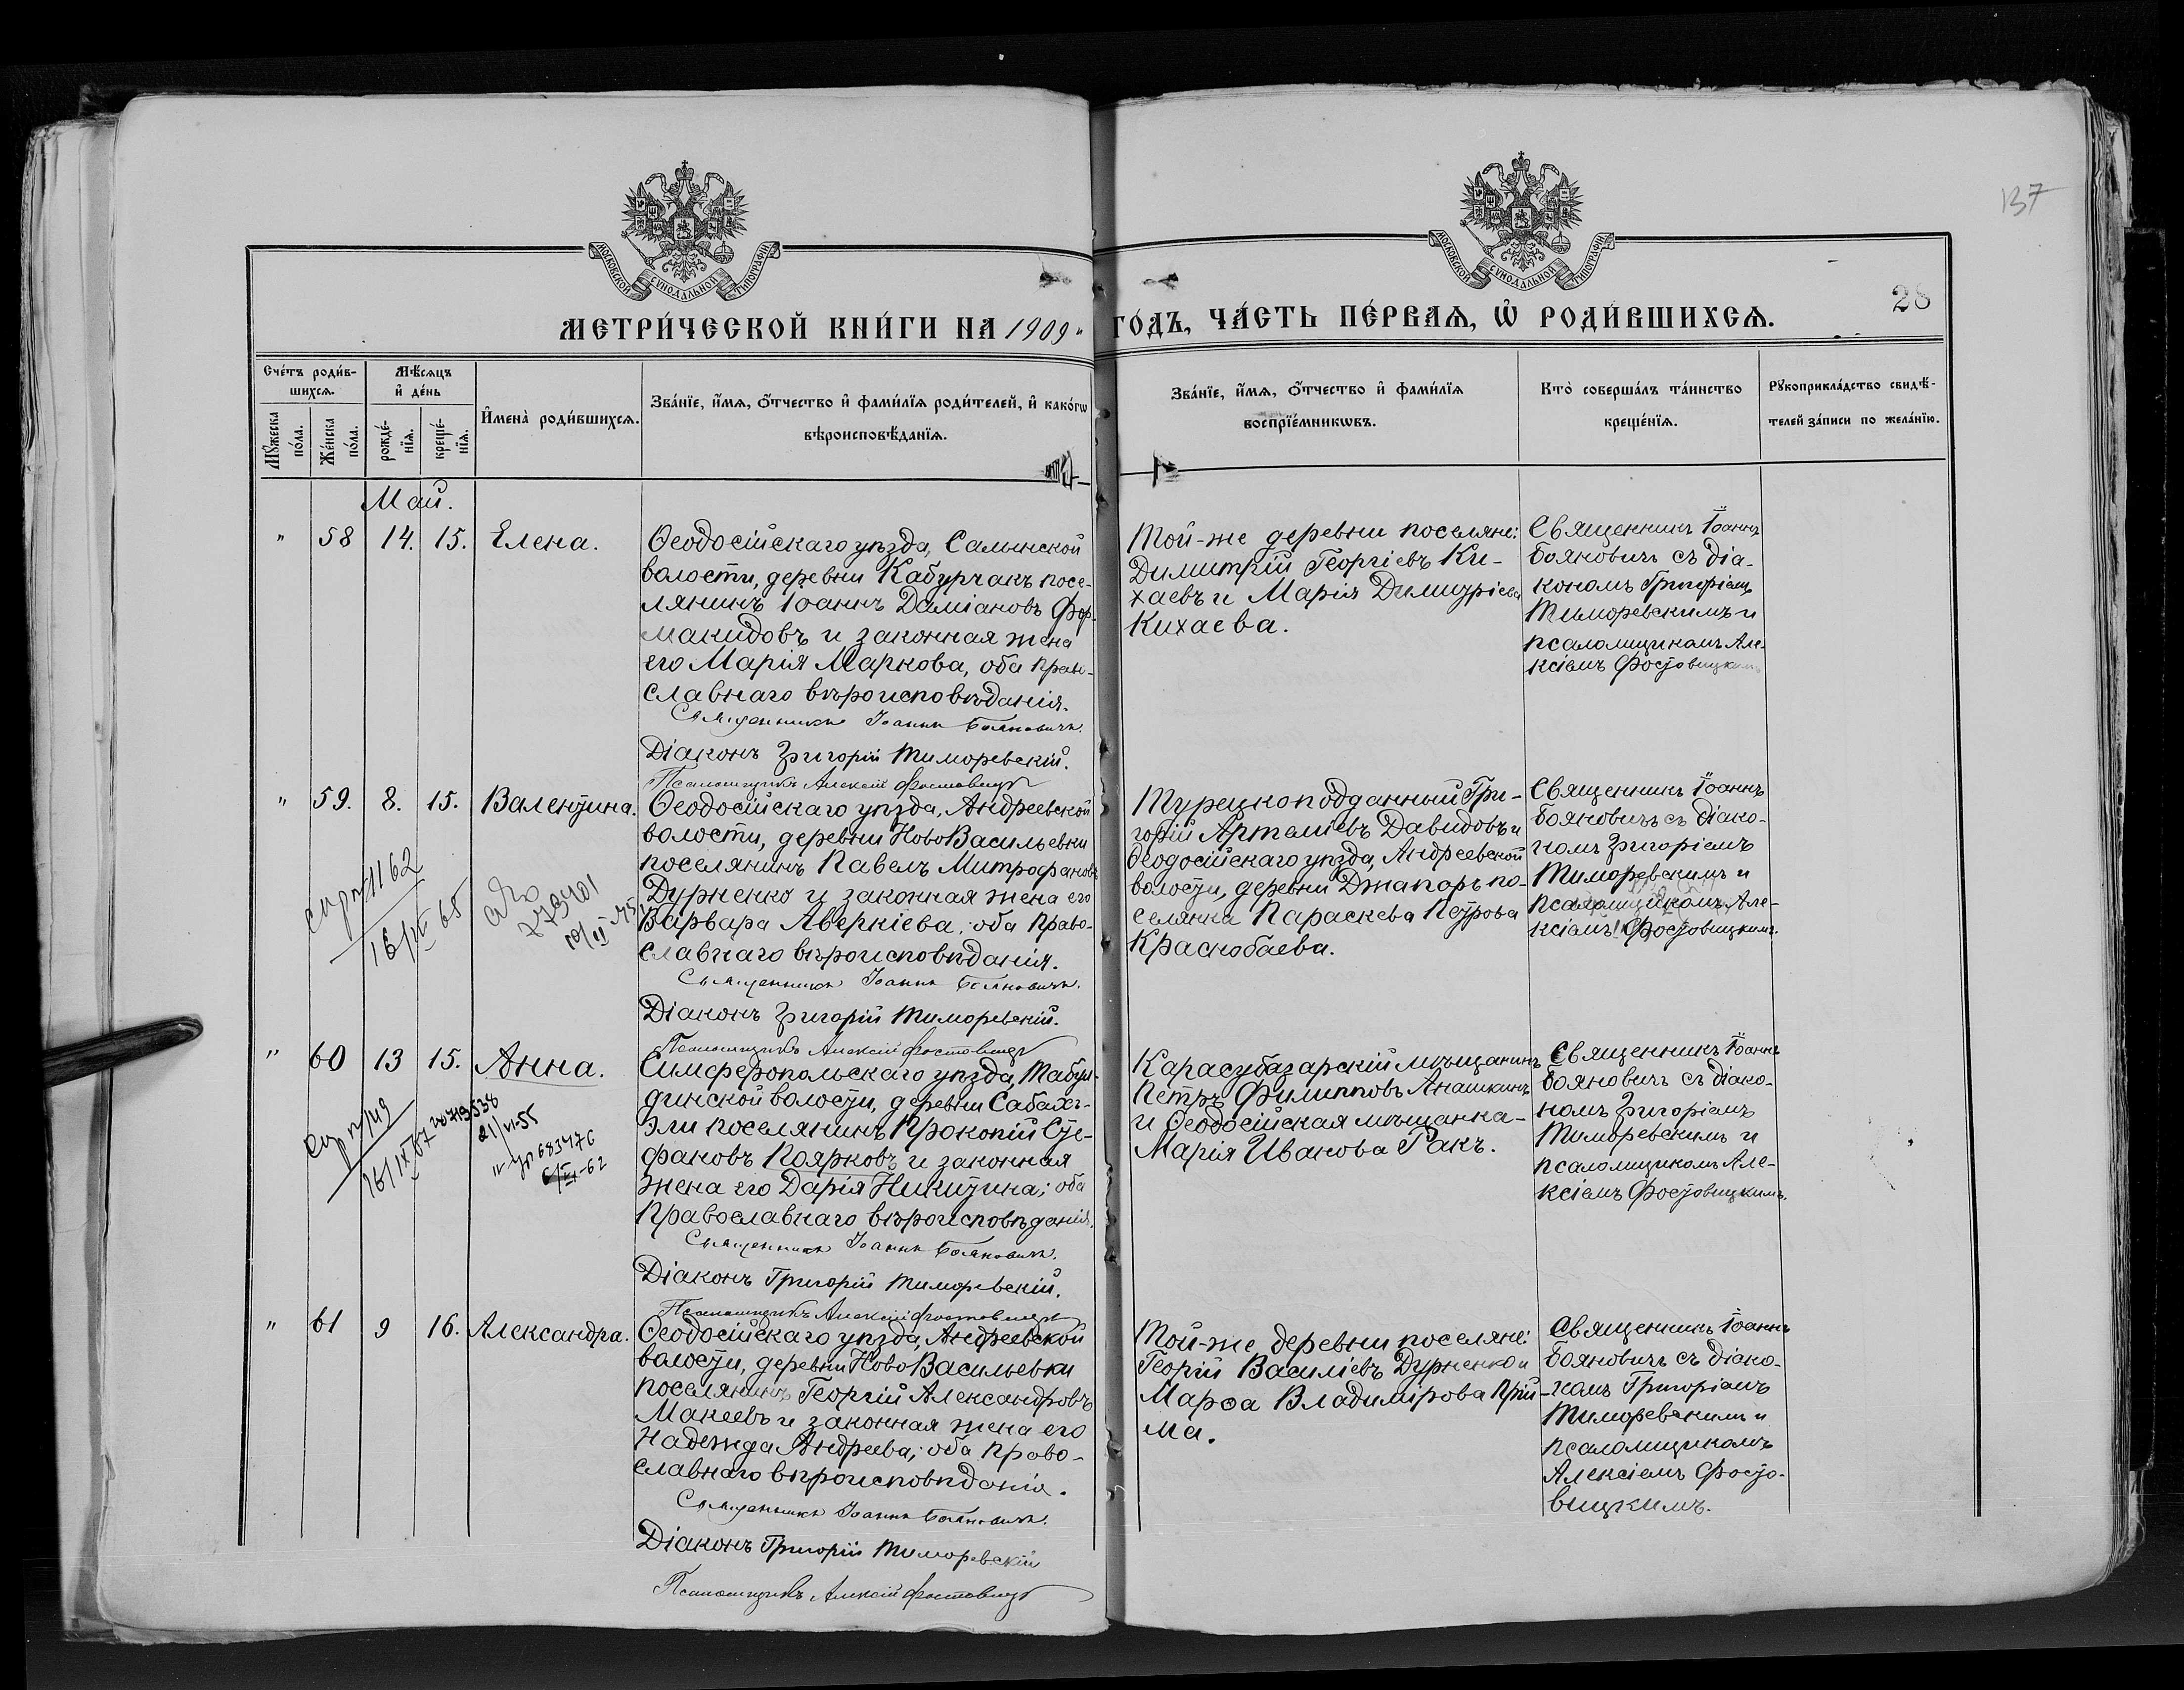 137
28
МОСКОВСКОЙ СУНОДАЛЬНОЙ ТИПОГРАФІИ
МОСКОВСКОЙ СУНОДАЛЬНОЙ ТИПОГРАФІИ
МЕТРИ́ЧЕСКОЙ КНИ́ГИ НА 1909 „ ГО́ДЪ, ЧА́СТЬ ПЕ́РВАѦ, Ѡ҆ РОДИ́ВШИХСѦ.
Сче́тъ роди́в-
шихсѧ.
Мꙋ́жеска по́ла.
Же́нска по́ла.
Мѣ́сѧцъ
и҆ де́нь
рожде́-
нїѧ.
креще́-
нїѧ.
И҆мена̀ роди́вшихсѧ.
Зва́нїе, и҆́мѧ, о҆́тчество и҆ фами́лїѧ роди́телей, и҆ како́гѡ
вѣроисповѣ́данїѧ.
Зва́нїе, и҆́мѧ, о҆́тчество и҆ фами́лїѧ
воспрїе́мникѡвъ.
Кто̀ соверша́лъ та́инство
креще́нїѧ.
Рꙋкоприкла́дство свидѣ́-
телей за́писи по жела́нїю.
Май.
„ 58 14. 15. Елена.
Ѳеодосійскаго уѣзда, Салынской
волости, деревни Кабурчакъ посе-
лянинъ Іоаннъ Даміановъ Фор-
макидовъ и законная жена
его Марія Маркова, оба право-
славнаго вѣроисповѣданія.
Священникъ Іоаннъ Бояновичъ.
Діаконъ Григорій Тиморевскій.
Псаломщикъ Алексій Фостовицкій
Той-же деревни поселяне:
Димитрій Георгіевъ Ки-
хаевъ и Марія Димитріева
Кихаева.
Священникъ Іоаннъ
Бояновичъ съ діа-
кономъ Григоріемъ
Тиморевскимъ и
псаломщикомъ Але-
ксіемъ Фостовицкимъ
„ 59. 8. 15. Валентина.
Ѳеодосійскаго уѣзда, Андреевской
волости, деревни НовоВасильевки
поселянинъ Павелъ Митрофановъ
Дурненко и законная жена его
Варвара Аверкіева; оба право-
славнаго вѣроисповѣданія.
Священникъ Іоаннъ Бояновичъ.
Діаконъ Григорій Тиморевскій.
Псаломщикъ Алексій Фостовицкій
Турецкоподданный Гри-
горій Артеміевъ Давидовъ и
Ѳеодосійскаго уѣзда, Андреевской
волости, деревни Джапаръ по-
селянка Параскева Петрова
Краснобаева.
Священникъ Іоаннъ
Бояновичъ съ діако-
номъ Григоріемъ
Тиморевскимъ и
псаломщикомъ Але-
ксіемъ Фостовицкимъ.
1162
16/IV 65
„ 60 13 15. Анна.
Симферопольскаго уѣзда, Табул-
динской волости, деревни Сабахъ-
Эли поселянинъ Прокопій Сте-
фановъ Поярковъ и законная
жена его Дарія Никитина; оба
Православнаго вѣроисповѣданія.
Священникъ Іоаннъ Бояновичъ.
Діаконъ Григорій Тиморевскій.
Псаломщикъ Алексій Фостовицкій
Карасубазарскій мѣщанинъ
Петръ Филипповъ Анашкинъ
и Ѳеодосійская мѣщанка-
Марія Иванова Ракъ.
Священникъ Іоаннъ
Бояновичъ съ діако-
номъ Григоріемъ
Тиморевскимъ и
псаломщикомъ Але-
ксіемъ Фостовицкимъ.
16/IX 67
21/VI-55
„ 61 9 16. Александра.
Ѳеодосійскаго уѣзда, Андреевской
волости, деревни НовоВасильевки
поселянинъ Георгій Александровъ
Макеевъ и законная жена его
Надежда Андреева; оба право-
славнаго вѣроисповѣданія.
Священникъ Іоаннъ Бояновичъ.
Діаконъ Григорій Тиморевскій
Псаломщикъ Алексій Фостовицкій
Той-же деревни поселяне:
Георгій Василіевъ Дурненко и
Марѳа Владимірова Прій-
ма.
Священникъ Іоаннъ
Бояновичъ съ діако-
номъ Григоріемъ
Тиморевскимъ и
псаломщикомъ
Алексіемъ Фосто-
вицкимъ.